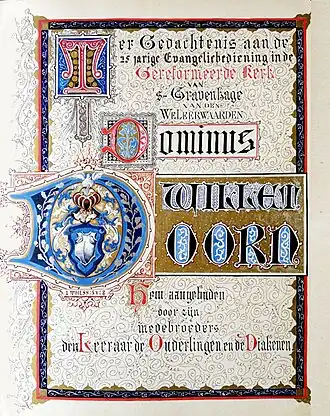 Ter Gedachtenis aan de
25 jarige Evangeliebediening in de
Gereformeerde Kerk
VAN
's-Gravenhage
VAN DEN
WELEERWAARDEN
Dominus
D WILLET
OORD
1 THESS
Hem aangeboden
door zijn
medebroeders
den Leeraar de Ouderlingen en de Diakenen